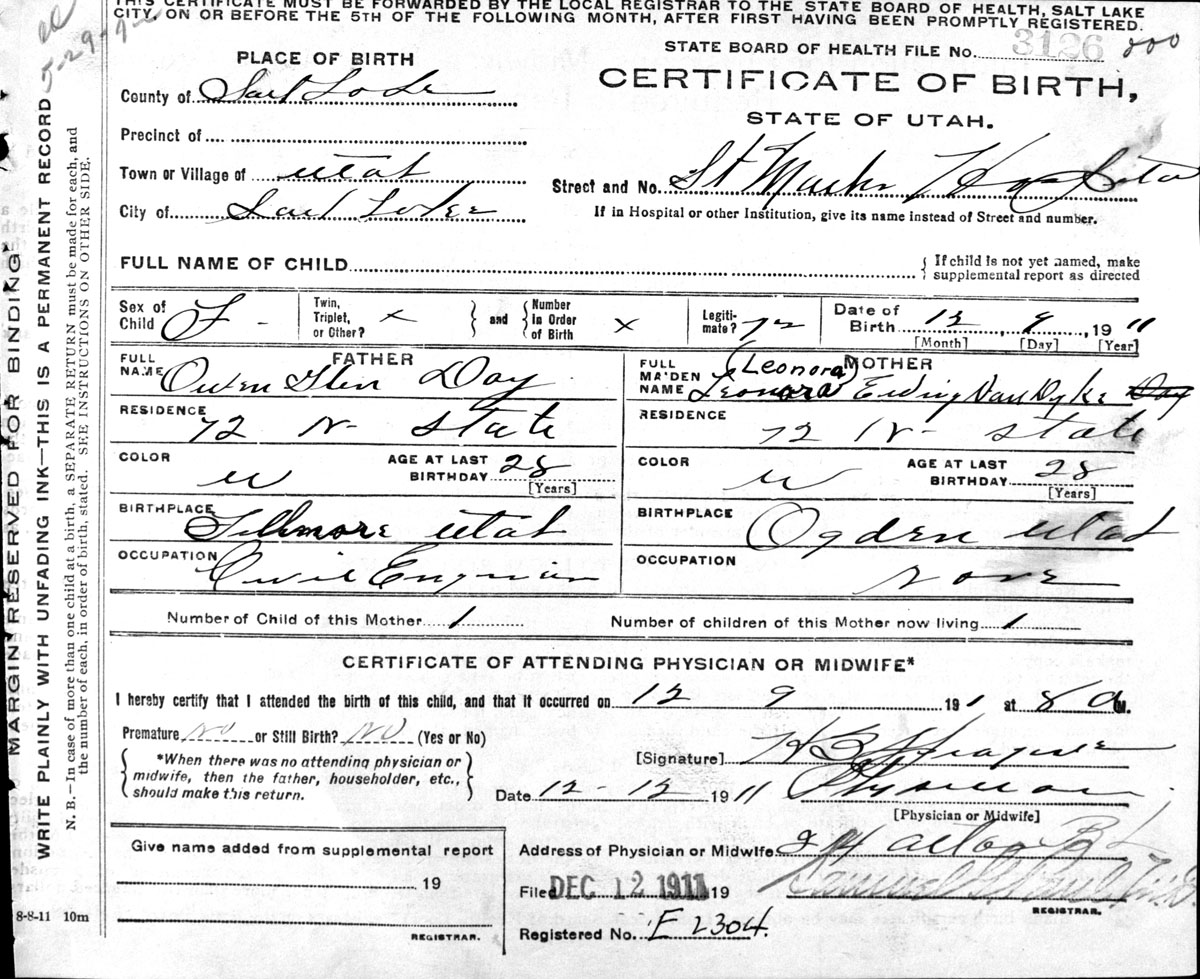 THIS CERTIFICATE MUST BE FORWARDED BY THE LOCAL REGISTRAR TO THE STATE BOARD OF HEALTH, SALT LAKE
CITY, ON OR BEFORE THE 5TH OF THE FOLLOWING MONTH, AFTER FIRST HAVING BEEN PROMPTLY REGISTERED.
STATE BOARD OF HEALTH FILE No. 3126
PLACE OF BIRTH
CERTIFICATE OF BIRTH,
STATE OF UTAH.
County of Salt Lake
Precinct of
Town or Village of Utah
City of Salt Lake
Street and No. St Marks Hospital
If in Hospital or other Institution, give its name instead of Street and number.
FULL NAME OF CHILD
{ If child is not yet named, make
supplemental report as directed
Sex of Child F - Twin, Triplet, or Other? x } and { Number in Order of Birth x Legiti-mate? yes Date of Birth 12, 9, 1911
[Month] [Day] [Year]
FATHER
FULL NAME Owen Glen Day
RESIDENCE 72 N- State
COLOR W AGE AT LAST BIRTHDAY 28
[Years]
BIRTHPLACE Fillmore Utah
OCCUPATION Civil Engineer
MOTHER
(Leonora)
FULL MAIDEN NAME Leonora Van Dyke Day
RESIDENCE 72 N- State
COLOR W AGE AT LAST BIRTHDAY 28
[Years]
BIRTHPLACE Ogden Utah
OCCUPATION none
Number of Child of this Mother 1 Number of children of this Mother now living 1
CERTIFICATE OF ATTENDING PHYSICIAN OR MIDWIFE*
I hereby certify that I attended the birth of this child, and that it occurred on 12 9 1911 at 8 a M.
Premature NO or Still Birth? NO (Yes or No)
{ *When there was no attending physician or
midwife, then the father, householder, etc.,
should make this return. }
[Signature] H B Sprague
Date 12-12 1911 Physician
[Physician or Midwife]
Give name added from supplemental report
19
REGISTRAR.
Address of Physician or Midwife
Filed DEC 12 1911 19
REGISTRAR.
Registered No. E 2304.
8-8-11 10m
MARGIN RESERVED FOR BINDING
WRITE PLAINLY WITH UNFADING INK—THIS IS A PERMANENT RECORD
N. B.—In case of more than one child at a birth, a SEPARATE RETURN must be made for each, and
the number of each, in order of birth, stated. SEE INSTRUCTIONS ON OTHER SIDE.